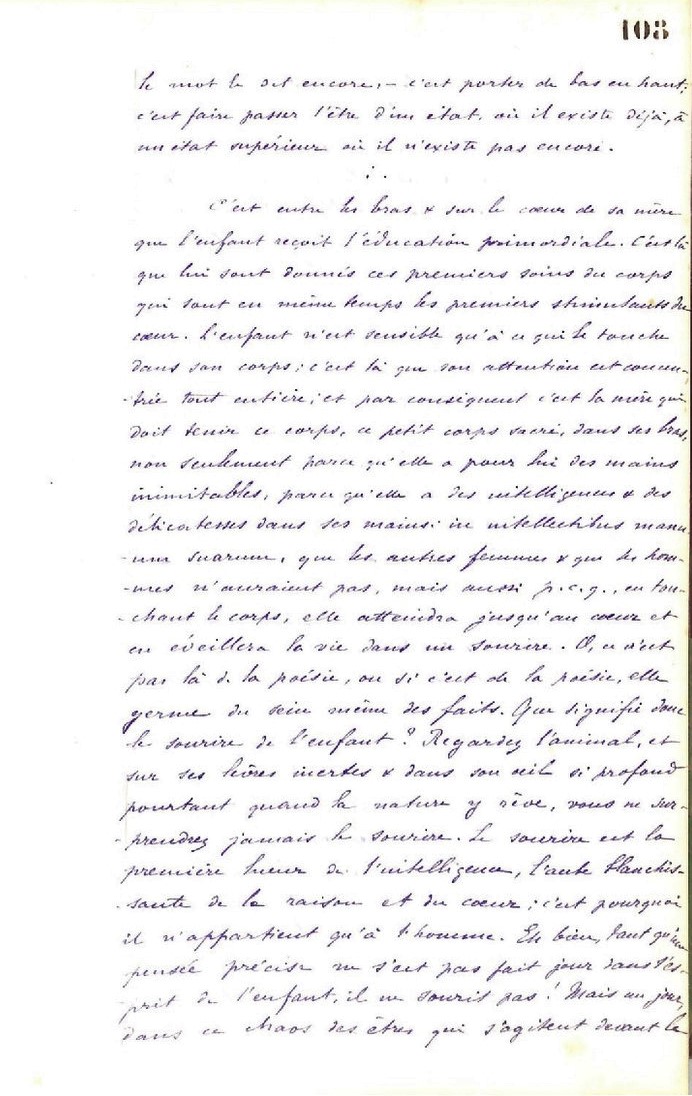 108
le mot le dit encore, – c'est porter de bas en haut;
c'est faire passer l'être d'un état, où il existe déjà, à
un état supérieur où il n'existe pas encore.
∴
C'est entre les bras & sur le cœur de sa mère
que l'enfant reçoit l'éducation primordiale. C'est là
que lui sont donnés ces premiers soins du corps
qui sont en même temps les premiers stimulants du
cœur. L'enfant n'est sensible qu'à ce qui le touche
dans son corps; c'est là que son attention est concen-
-trée tout entière; et par conséquent c'est la mère qui
doit tenir ce corps, ce petit corps sacré, dans ses bras,
non seulement parce qu'elle a pour lui des mains
inimitables, parce qu'elle a des intelligences & des
délicatesses dans ses mains: in intellectibus manu-
-um suarum, que les autres femmes & que les hom-
-mes n'auraient pas, mais aussi p.c.q., en tou-
-chant le corps, elle atteindra jusqu'au cœur et
en éveillera la vie dans un sourire. O, ce n'est
pas là d. la poésie, ou si c'est de la poésie, elle
germe du sein même des faits. Que signifie donc
le sourire de l'enfant? Regardez l'animal, et
sur ses lèvres inertes & dans son œil si profond
pourtant quand la nature y rêve, vous ne sur-
-prendrez jamais le sourire. Le sourire est la
première lueur de l'intelligence, l'aube blanchis-
-sante de la raison et du cœur; c'est pourquoi
il n'appartient qu'à l'homme. Eh bien, tant qu'une
pensée précise ne s'est pas fait jour dans l'es-
-prit de l'enfant, il ne sourit pas! Mais un jour,
dans ce chaos des êtres qui s'agitent devant le